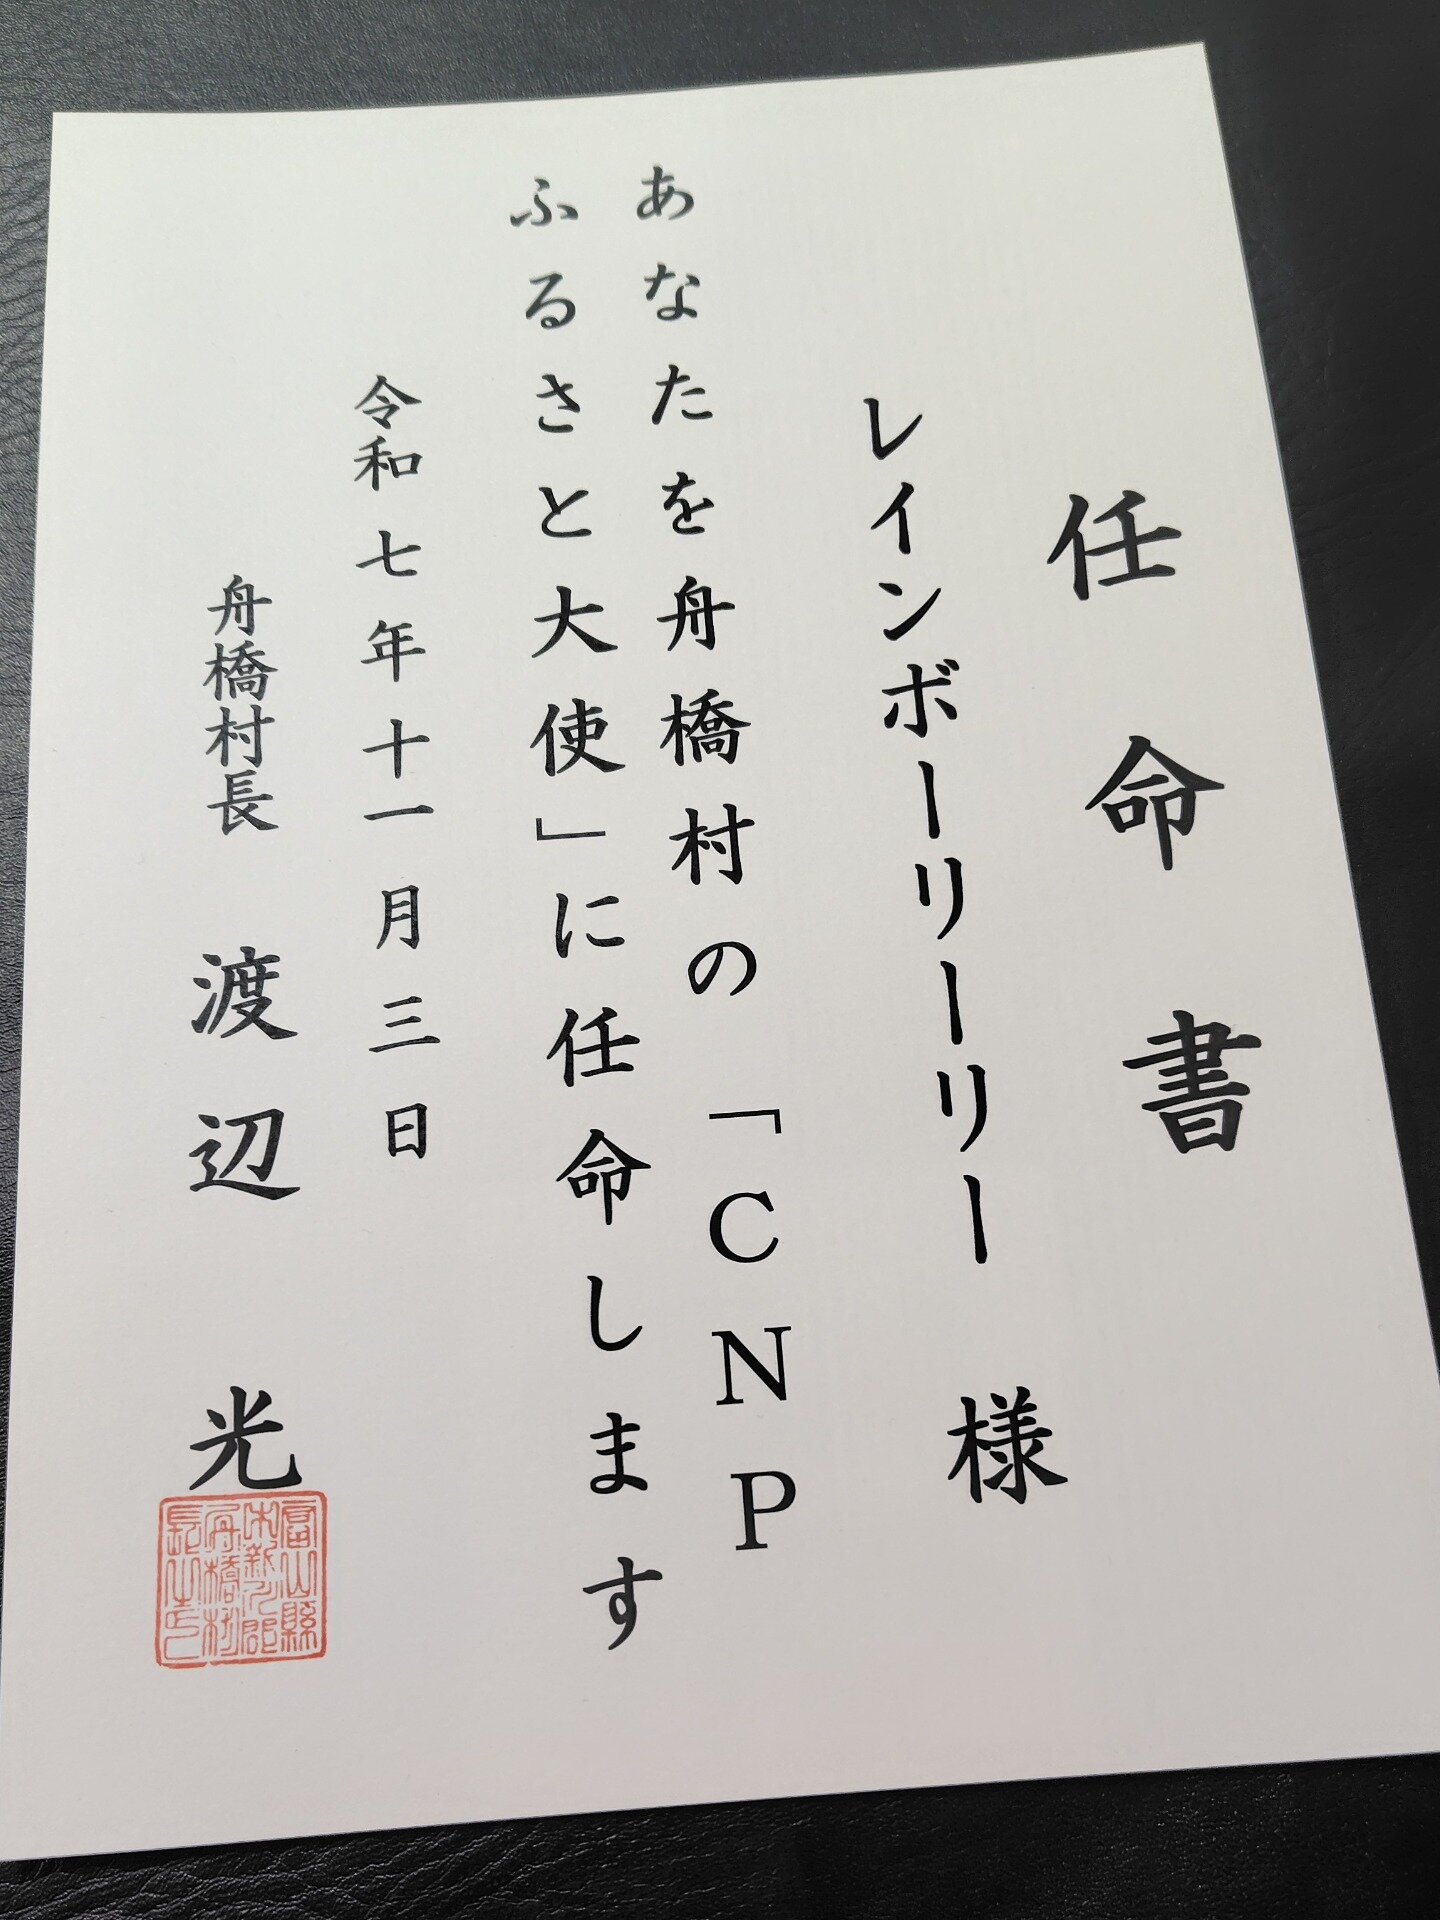 任命書
レインボーリーリー 様
あなたを舟橋村の「CNP
ふるさと大使」に任命します
令和七年十一月三日
舟橋村長 渡辺 光
富山縣
中新川郡
舟橋村
長之印